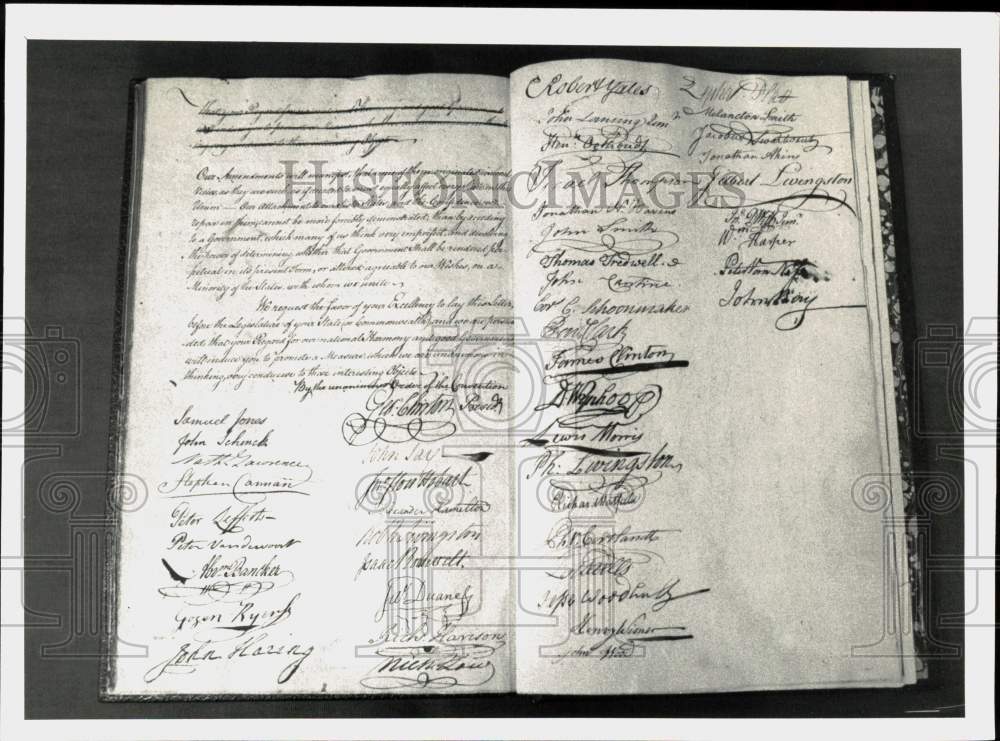 Our Amendments will manifest, that none of them originated in local
Views, as they are such as if acceded to must equally affect every State in the
Union — Our attachment to our Sister States, and the Confidence we
repose in them, cannot be more forcibly demonstrated, than by acceding
to a Government, which many of us think very imperfect, and devolving
the Power of determining whether that Government shall be rendered per-
petual in its present Form, or altered agreeable to our Wishes, on a
Minority of the States, with whom we unite.
We request the favor of your Excellency to lay this Letter
before the Legislature of your State (or Commonwealth) and we are persua-
ded that your Regard for our national Harmony and good Government
will induce you to promote a Measure, which we are unanimous in
thinking, very conducive to those interesting Objects.
By the unanimous Order of the Convention
Geo: Clinton Presidt
Samuel Jones
John Schenck
Nathl. Lawrence
Stephen Carman
Peter Lefferts
Peter Vandervoort
Abrm. Bancker
Gozen Ryerss
John Haring
John Jay
Jno Sloss Hobart
Alexander Hamilton
Robt R Livingston
Isaac Roosevelt.
Jas. Duane
Richd Harison
Nich Low
Robert Yates
John Lansing Junr.
Henry Oothoudt
Israel Thompson
Jonathan N. Havens
John Smith
Thomas Tredwell
John Cantine
Cor. C. Schoonmaker
James Clinton
D Wynkoop
Lewis Morris
Ph. Livingston
Richard Hatfield
Jesse Woodhull
Henry Wisner
John Wood
Melancton Smith
Jacobus Swartwout
Jonathan Akins
Gilbert Livingston
Wm Harper
Peter Van Ness
John Bay
HISTORIC IMAGES